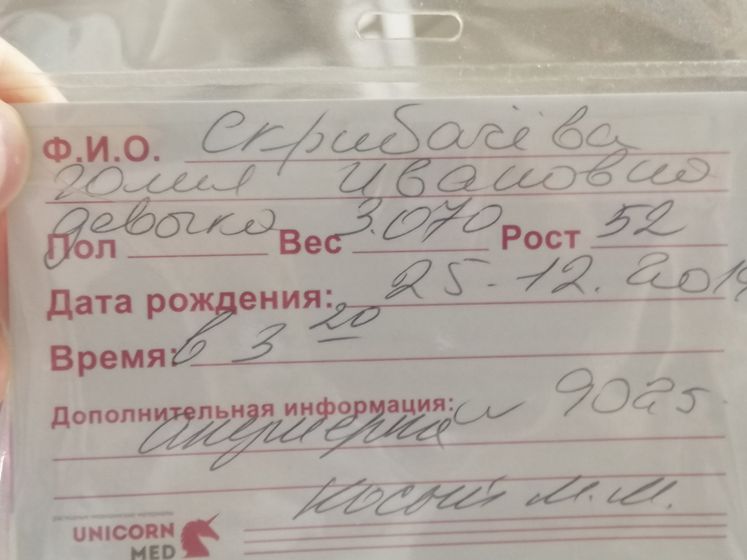 Ф.И.О. Скрибачёва
Юлия Ивановна
Пол девочка Вес 3.070 Рост 52
Дата рождения: 25-12.2019
Время: в 3 20
Дополнительная информация: 9025
Акушерка
Косый М.М.
UNICORN
MED